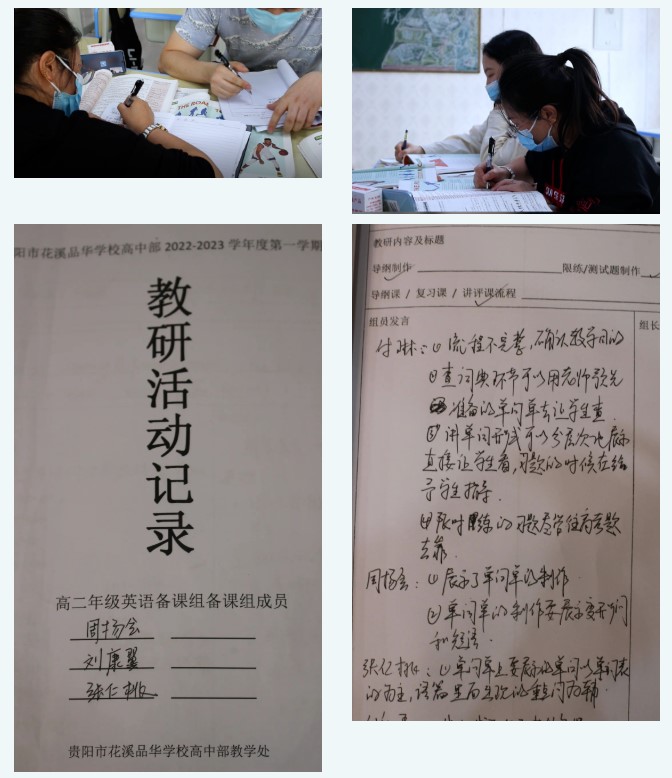 THE ROAD
阳市花溪品华学校高中部 2022-2023 学年度第一学期
教
研
活
动
记
录
高二年级英语备课组备课组成员
周扬会
刘康翼
张仁桃
贵阳市花溪品华学校高中部教学处
教研内容及标题
导纲制作 限练/测试题制作
导纲课 / 复习课 / 讲评课流程
组员发言 组长
付琳：① 流程不完整，确认教学目的
② 查词典环节可以用老师预先
准备的单词单去让学生查
③ 讲单词形式可以分层次地展示
直接让学生看，习题的时候在给
予学生指导
④ 限时训练的习题尽管往高考题
去靠
周扬会：① 展示了单词单的制作
② 单词单的制作要展示变形词
和短语
张仁桃：① 单词单上要展示的单词以单词表
的为主，语篇里面出现的重点词为辅